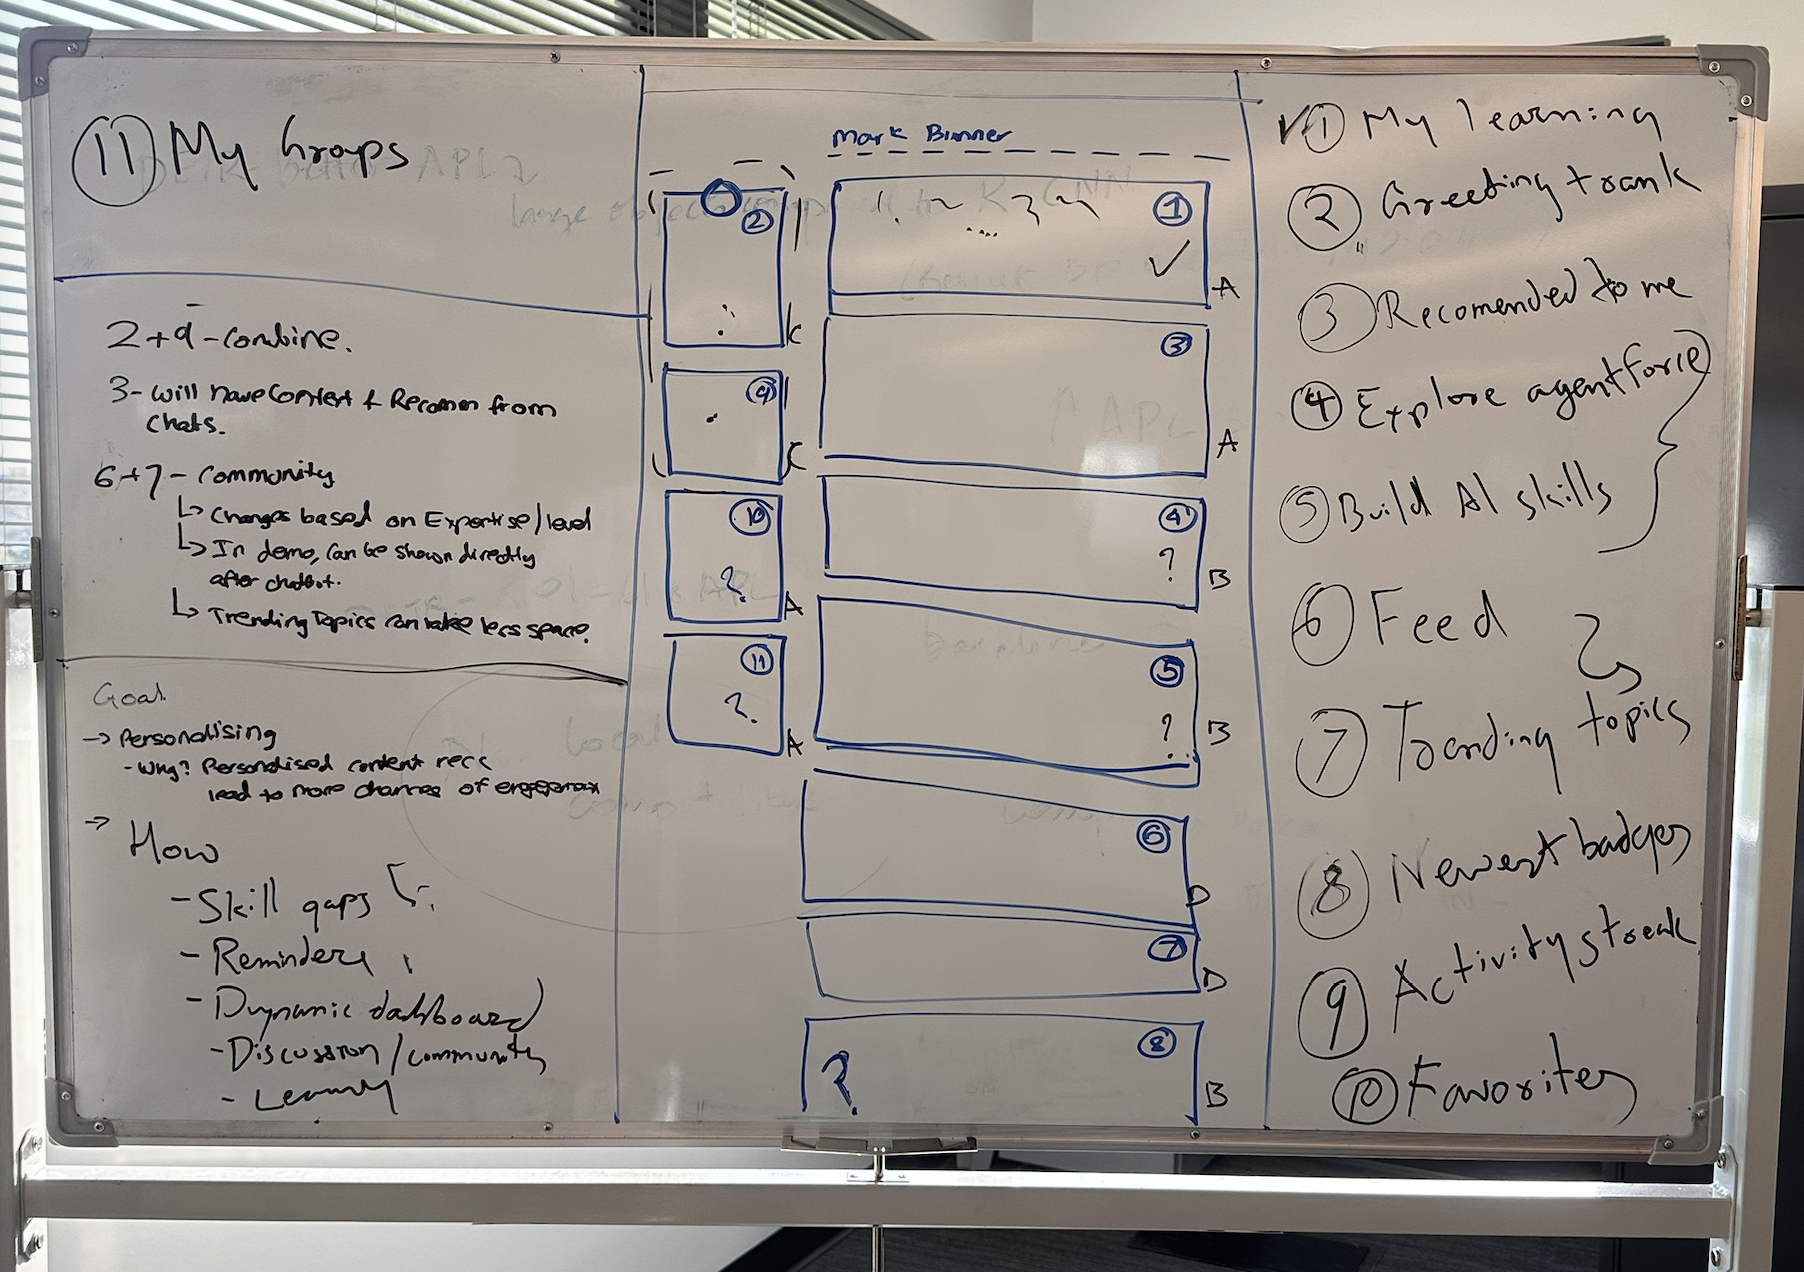 11 My Groups
2+9 - Combine.
3 - Will have Context & Recomm from
Chats.
6+7 - Community
↳ Changes based on Expertise/level
↳ In demo, can be shown directly
after chatbot.
↳ Trending Topics can take less space.
Goal
→ Personalising
- Why? Personalised content recc
lead to more chances of
→ How
- Skill gaps
- Reminders
- Dynamic dashboard
- Discussion/community
- Learning
Mark Banner
2
9
C
10
?
A
11
?
A
1
✓
A
3
A
4
?
B
5
?
B
6
D
7
D
8
?
B
✓ 1 My learning
2 Greeting + rank
3 Recomended to me
4 Explore agentforce
5 Build AI skills
6 Feed
7 Tranding topics
8 Newest badges
9 Activity streak
10 Favorites